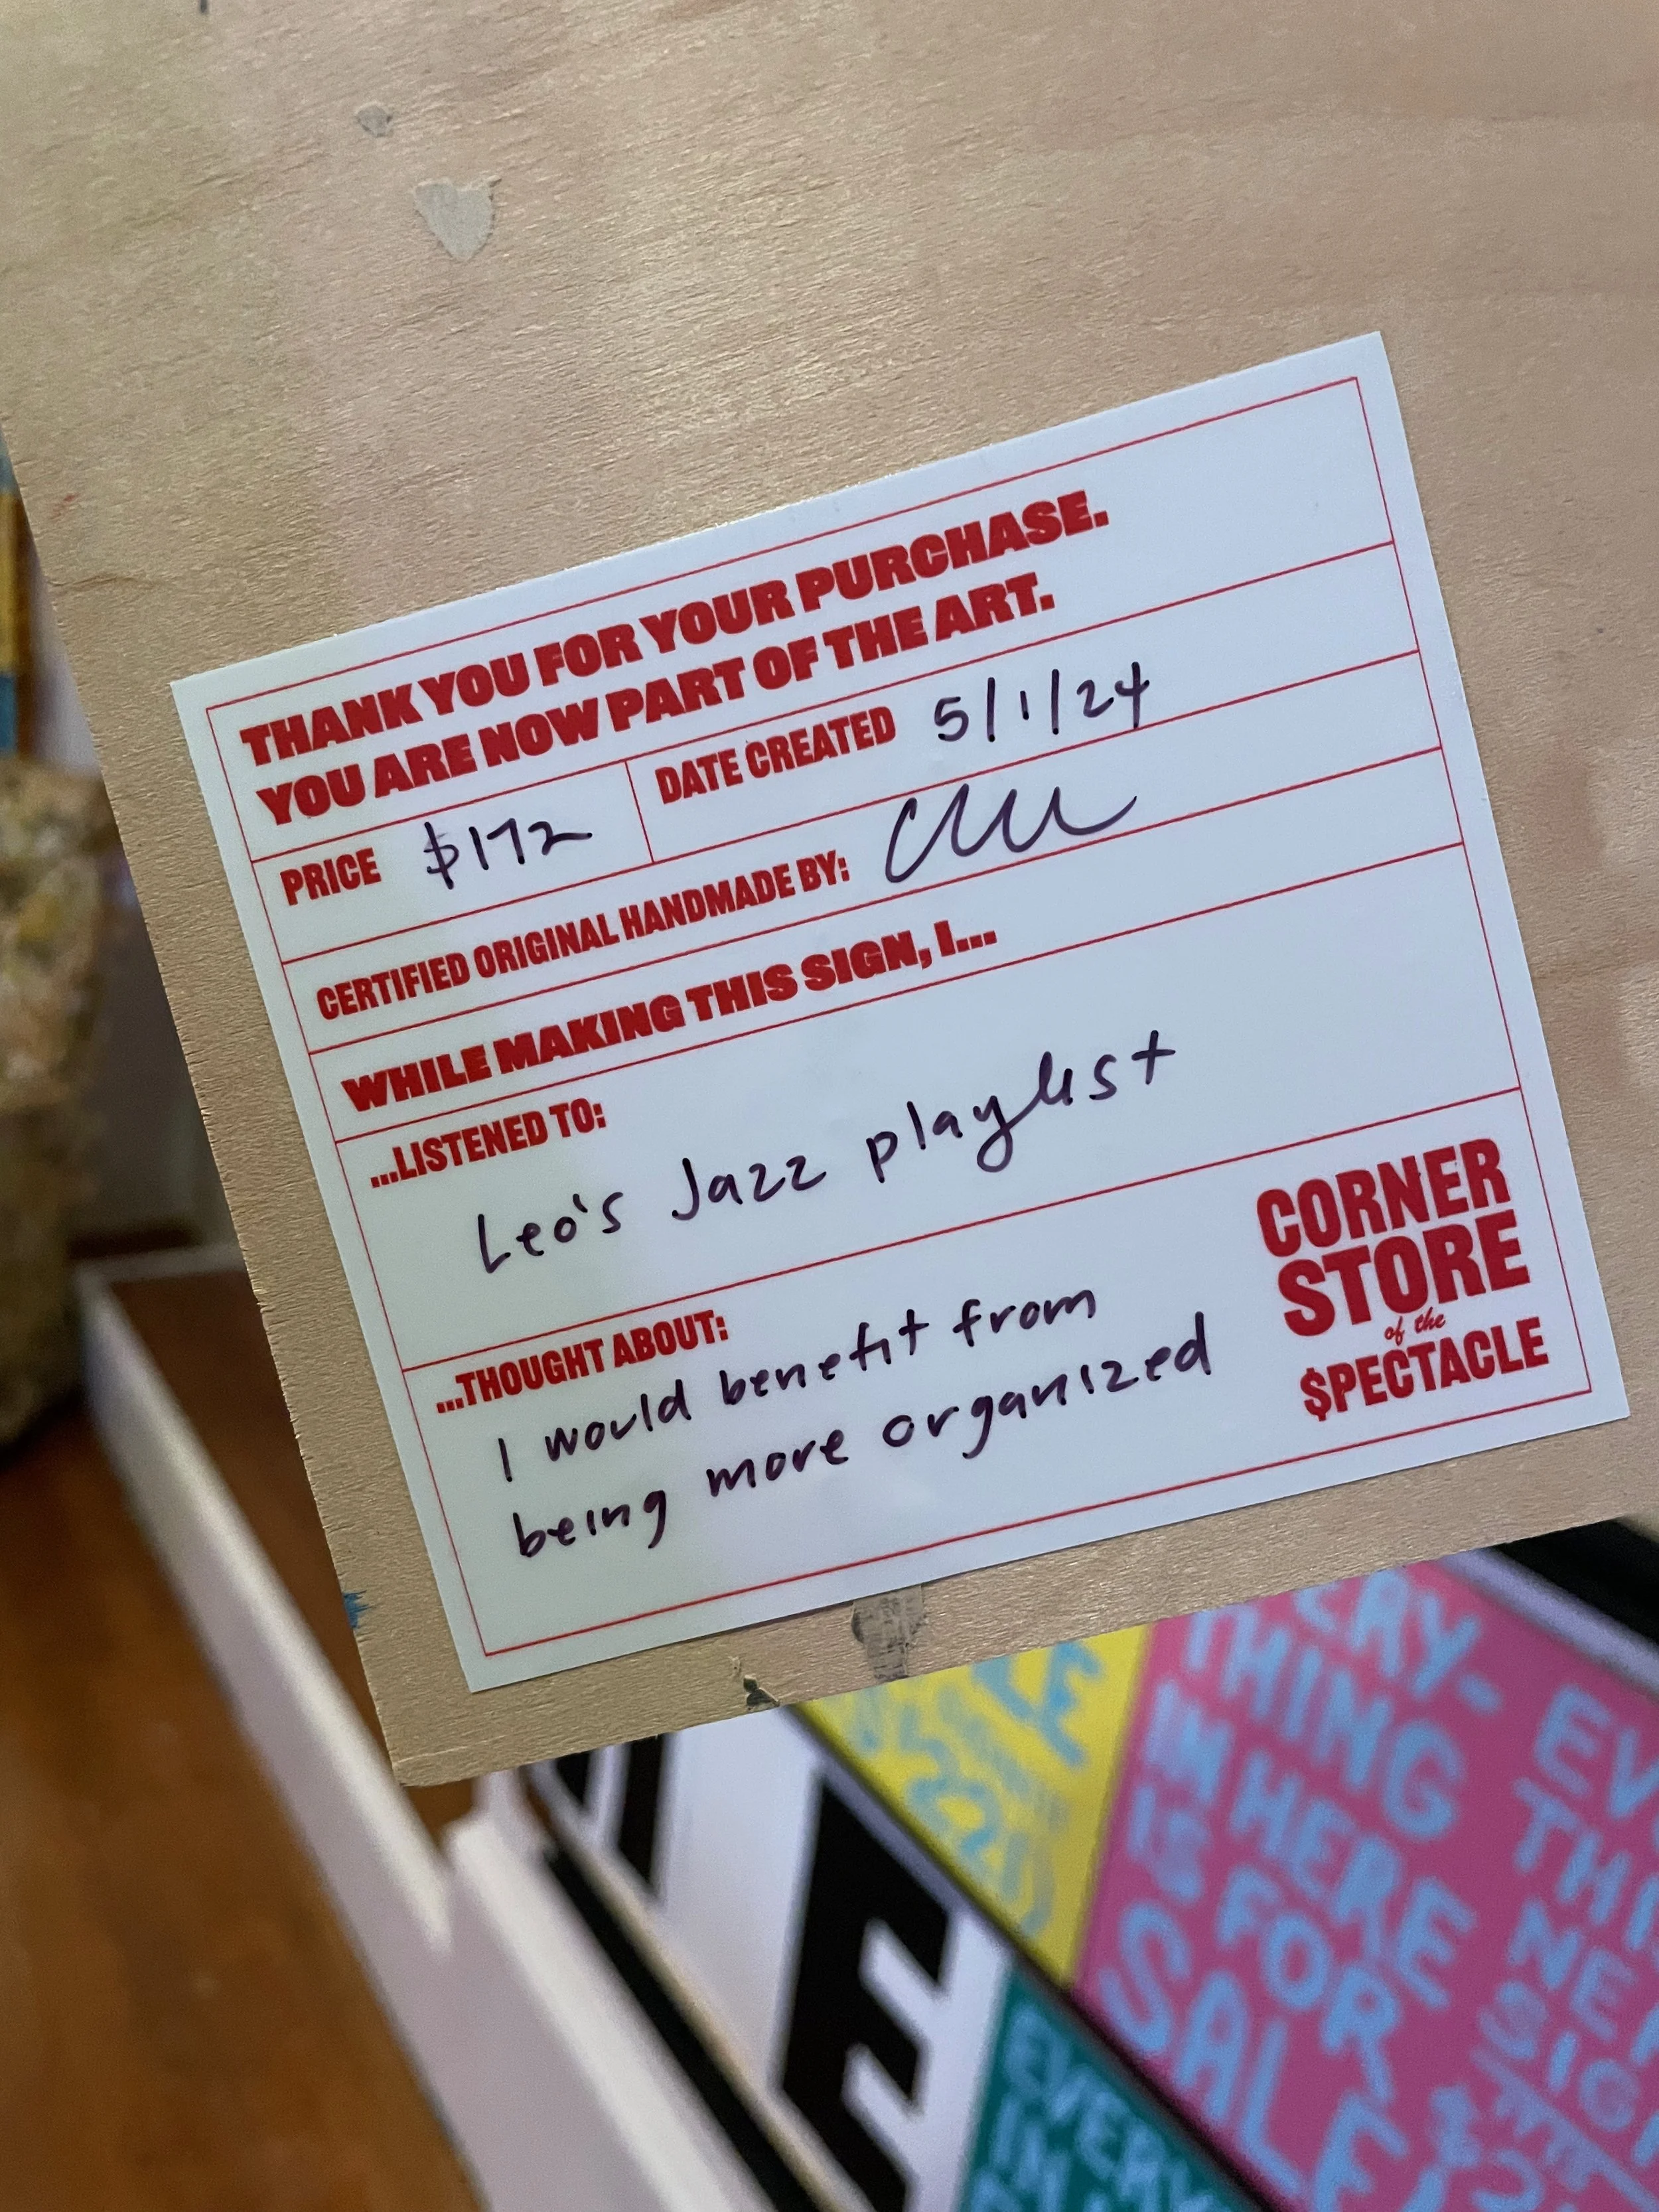 THANK YOU FOR YOUR PURCHASE.
YOU ARE NOW PART OF THE ART.
PRICE $172
DATE CREATED 5/1/24
CERTIFIED ORIGINAL HANDMADE BY:
WHILE MAKING THIS SIGN, I...
...LISTENED TO:
Leo's Jazz playlist
...THOUGHT ABOUT:
I would benefit from
being more organized
CORNER
STORE
of the
$PECTACLE
THING
IN HERE
IS FOR
SALE
EVERY